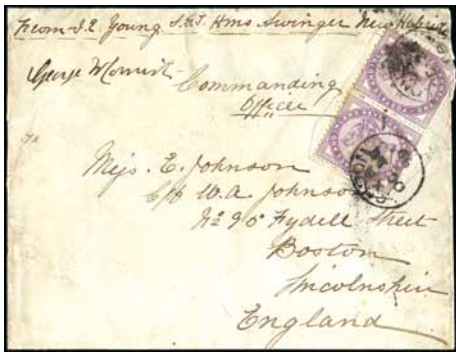 From J.E. Young S.B.S. Hms Swinger New Hebrides
George W Morrist
Commanding
Officer
Miss. E. Johnson
C/o W.A. Johnson
No 90 Fydell Street
Boston
Lincolnshire
England